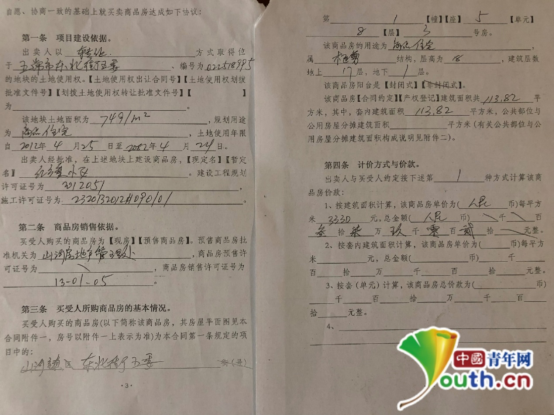 自愿、协商一致的基础上就买卖商品房达成如下协议：
第一条 项目建设依据。
出卖人以 转让 方式取得位
于 、编号为
的地块土地使用权。【土地使用权出让合同号】【土地使用权划拨
批准文件号】【划拨土地使用权转让批准文件号】
为
该地块土地面积为 7491m² ，规划用途
为 商品住宅 ，土地使用年限
自 2012 年 4 月 25 日至 年 4 月 24 日。
出卖人经批准，在上述地块上建设商品房，【现定名】【暂定
名】 。建设工程规划
许可证号为 2012051
施工许可证号为 232013201214090101
第二条 商品房销售依据。
买受人购买的商品房为【现房】【预售商品房】。预售商品房批
准机关为 ，商品房预售许
可证号为 ，商品房销售许可证号为
13-01-05 。
第三条 买受人所购商品房的基本情况。
买受人购买的商品房(以下简称该商品房，其房屋平面图见本
合同附件一，房号以附件一上表示为准)为本合同第一条规定的项
目中的：
-3-
第 1 【幢】【座】 5 【单元】
8 【层】 3 号房。
该商品房的用途为 商品住宅 ，
属 结构，层高为 ，建筑层数
地上 17 层，地下 1 层。
该商品房阳台是【封闭式】【非封闭式】。
该商品房【合同约定】【产权登记】建筑面积共 113.82 平
方米，其中，套内建筑面积 113.82 平方米，公共部位与
公用房屋分摊建筑面积 平方米(有关公共部位与公
用房屋分摊建筑面积构成说明见附件二)。
第四条 计价方式与价款。
出卖人与买受人约定按下述第 1 种方式计算该商
品房价款：
1、按建筑面积计算，该商品房单价为（人民币）每平方
米 3330 元，总金额（人民币） 千 百
拾 万 千 百 拾 元整。
2、按套内建筑面积计算，该商品房单价为（ 币）每平
方米 元，总金额（ 币） 千
百 拾 万 千 百 拾 元整。
3、按套(单元)计算，该商品房总价款为（ 币）
千 百 拾 万 千 百
拾 元整。
4、
中国青年网
Youth.cn